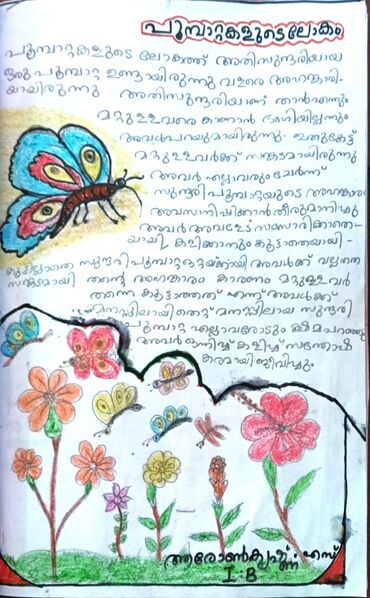 പൂമ്പാറ്റകളുടെ ലോകം
പൂമ്പാറ്റകളുടെ ലോകത്ത് അതിസുന്ദരിയായ
ഒരു പൂമ്പാറ്റ ഉണ്ടായിരുന്നു വളരെ അഹങ്കാരി-
യായിരുന്നു അതിസുന്ദരിയാണ് താൻഎന്നും
മറ്റുള്ളവരെ കാണാൻ ഭംഗിയില്ലന്നും
അവൾപറയുമായിരുന്നു. ഇതുകേട്ട്
മറ്റുള്ളവർക്ക് സങ്കടമായിരുന്നു
അവർ എല്ലാവരും ചേർന്ന്
സുന്ദരിപൂമ്പാറ്റയുടെ അഹങ്കാരം
അവസാനിപ്പിക്കാൻതീരുമാനിച്ചു
അവർ അവളോട് സംസാരിക്കാതെ-
യായി, കളിക്കാനും കൂട്ടാതെയായി-
സുന്ദരിപൂമ്പാറ്റഒറ്റയ്ക്കായി അവൾക്ക് വല്ലാതെ
സങ്കടമായി തന്റെ അഹങ്കാരം കാരണം മറ്റുള്ളവർ
തന്നെ കൂട്ടാത്തത് എന്ന് അവൾക്ക്
മനസ്സിലായിതെറ്റ് മനസ്സിലായ സുന്ദരി
പൂമ്പാറ്റ എല്ലാവരോടും ക്ഷമപറഞ്ഞു
അവർഒന്നിച്ച് കളിച്ച് സന്തോഷ
കരമായിജീവിച്ചു.
ആരോൺകൃഷ്ണ എസ്
I B